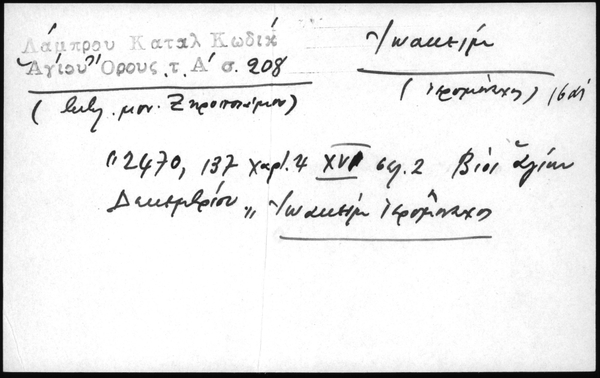 Λάμπρου Καταλ Κωδικ
Ἁγίου Ὄρους τ. Α' σ. 208
Ἰωακείμ
(βιβλ. μον. Ξηροποτάμου)
(ἱερομόναχος) 16 αἰ
"2470, 137 χαρτ. 4 XVI σελ. 2 Βίοι ἁγίων
Δεκεμβρίου " Ἰωακείμ ἱερομόναχος